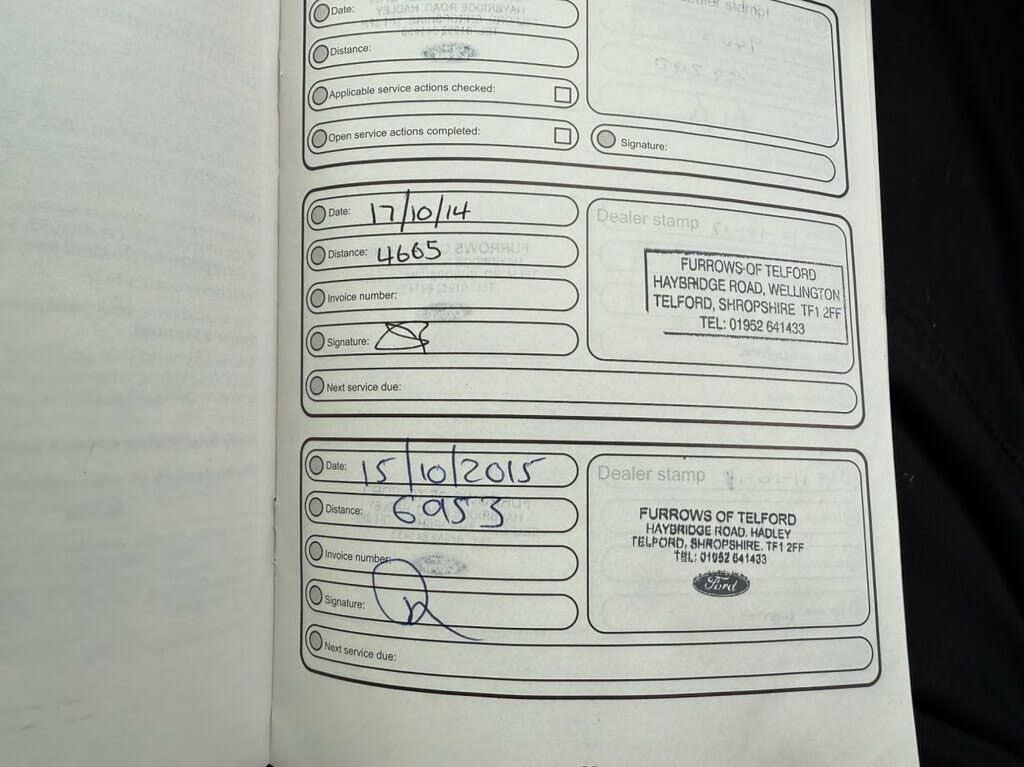 Date:
Distance:
Applicable service actions checked:
Open service actions completed:
Dealer stamp
Signature:
Date: 17/10/14
Distance: 4665
Invoice number:
Signature:
Next service due:
Dealer stamp
FURROWS OF TELFORD
HAYBRIDGE ROAD, WELLINGTON
TELFORD, SHROPSHIRE TF1 2FF
TEL: 01952 641433
Date: 15/10/2015
Distance: 6953
Invoice number:
Signature:
Next service due:
Dealer stamp
FURROWS OF TELFORD
HAYBRIDGE ROAD, HADLEY
TELFORD, SHROPSHIRE. TF1 2FF
TEL: 01952 641433
Ford